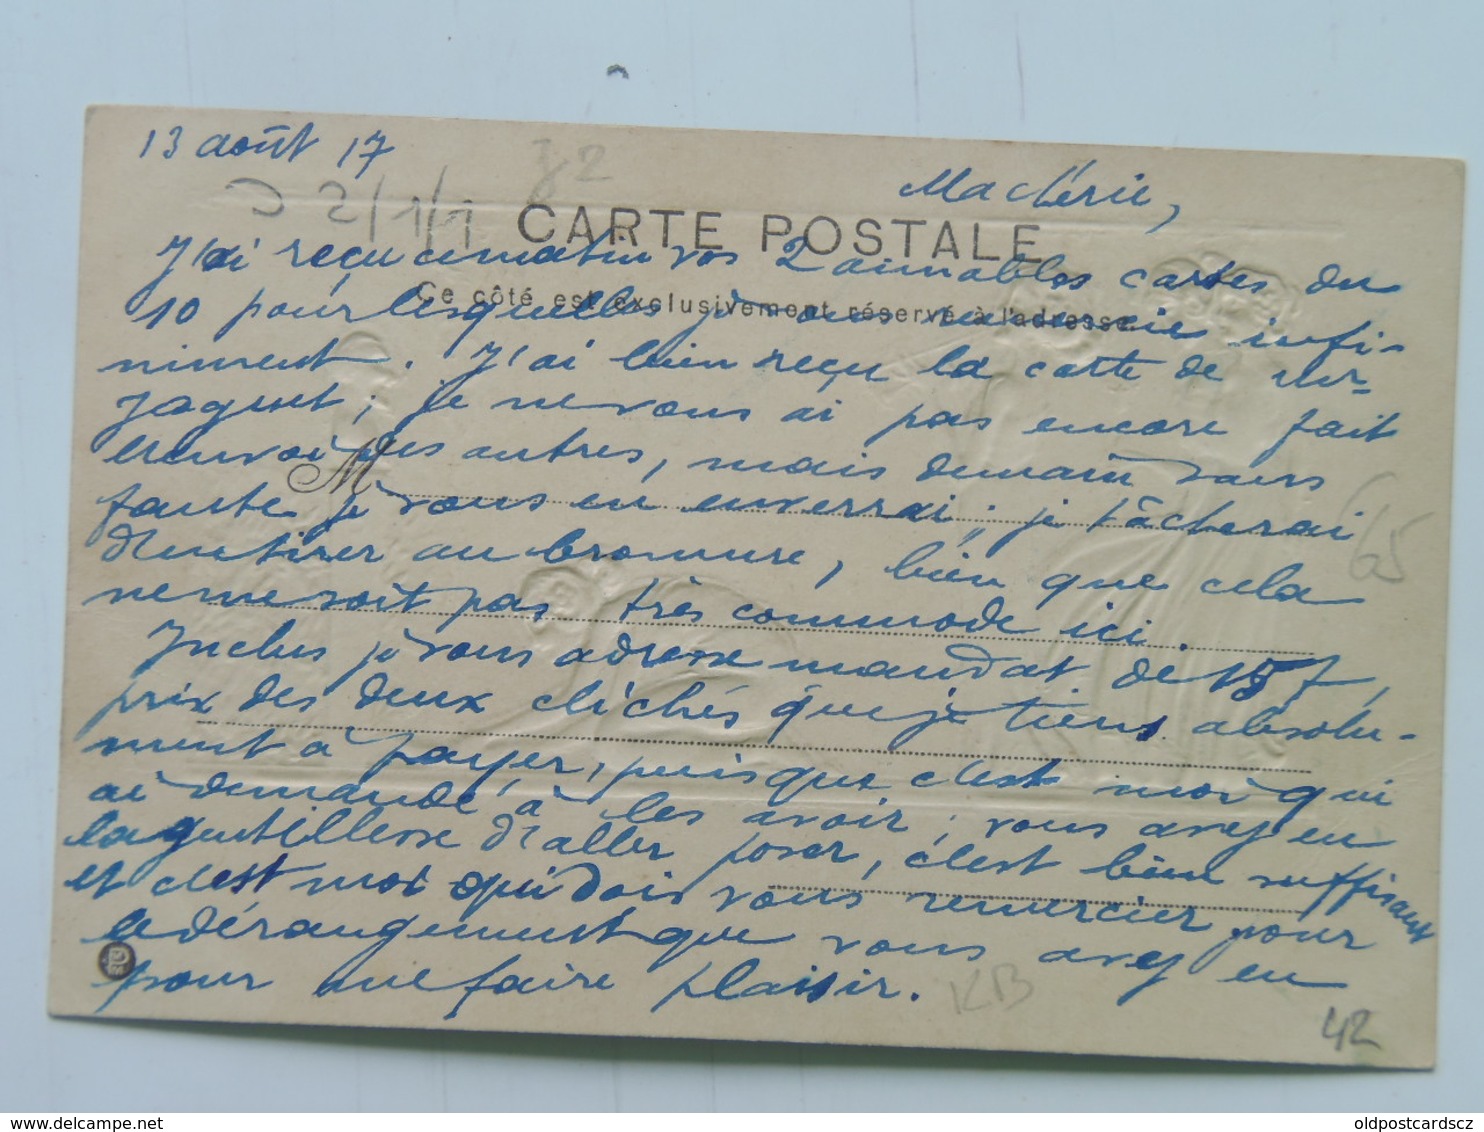 13 août 17
J2
D 2/1/1
Ma chérie,
CARTE POSTALE
J'ai reçu ce matin vos 2 aimables cartes du
Ce côté est exclusivement réservé à l'adresse.
10 pour lesquelles je vous remercie infi-
niment. J'ai bien reçu la carte de Mr
Jaquet; je ne vous ai pas encore fait
l'envoi des autres, mais demain sans
M
faute je vous en enverrai; je tâcherai
65
d'en tirer au bromure, bien que cela
ne me soit pas très commode ici.
Inclus je vous adresse mandat de 15f,
prix des deux clichés que je tiens absolu-
ment à payer, puisque c'est moi qui
ai demandé à les avoir; vous avez eu
la gentillesse d'aller poser, c'est bien suffisant
et c'est moi qui dois vous remercier pour
le dérangement que vous avez eu
pour me faire plaisir.
KB
42
delcampe.net
oldpostcardscz